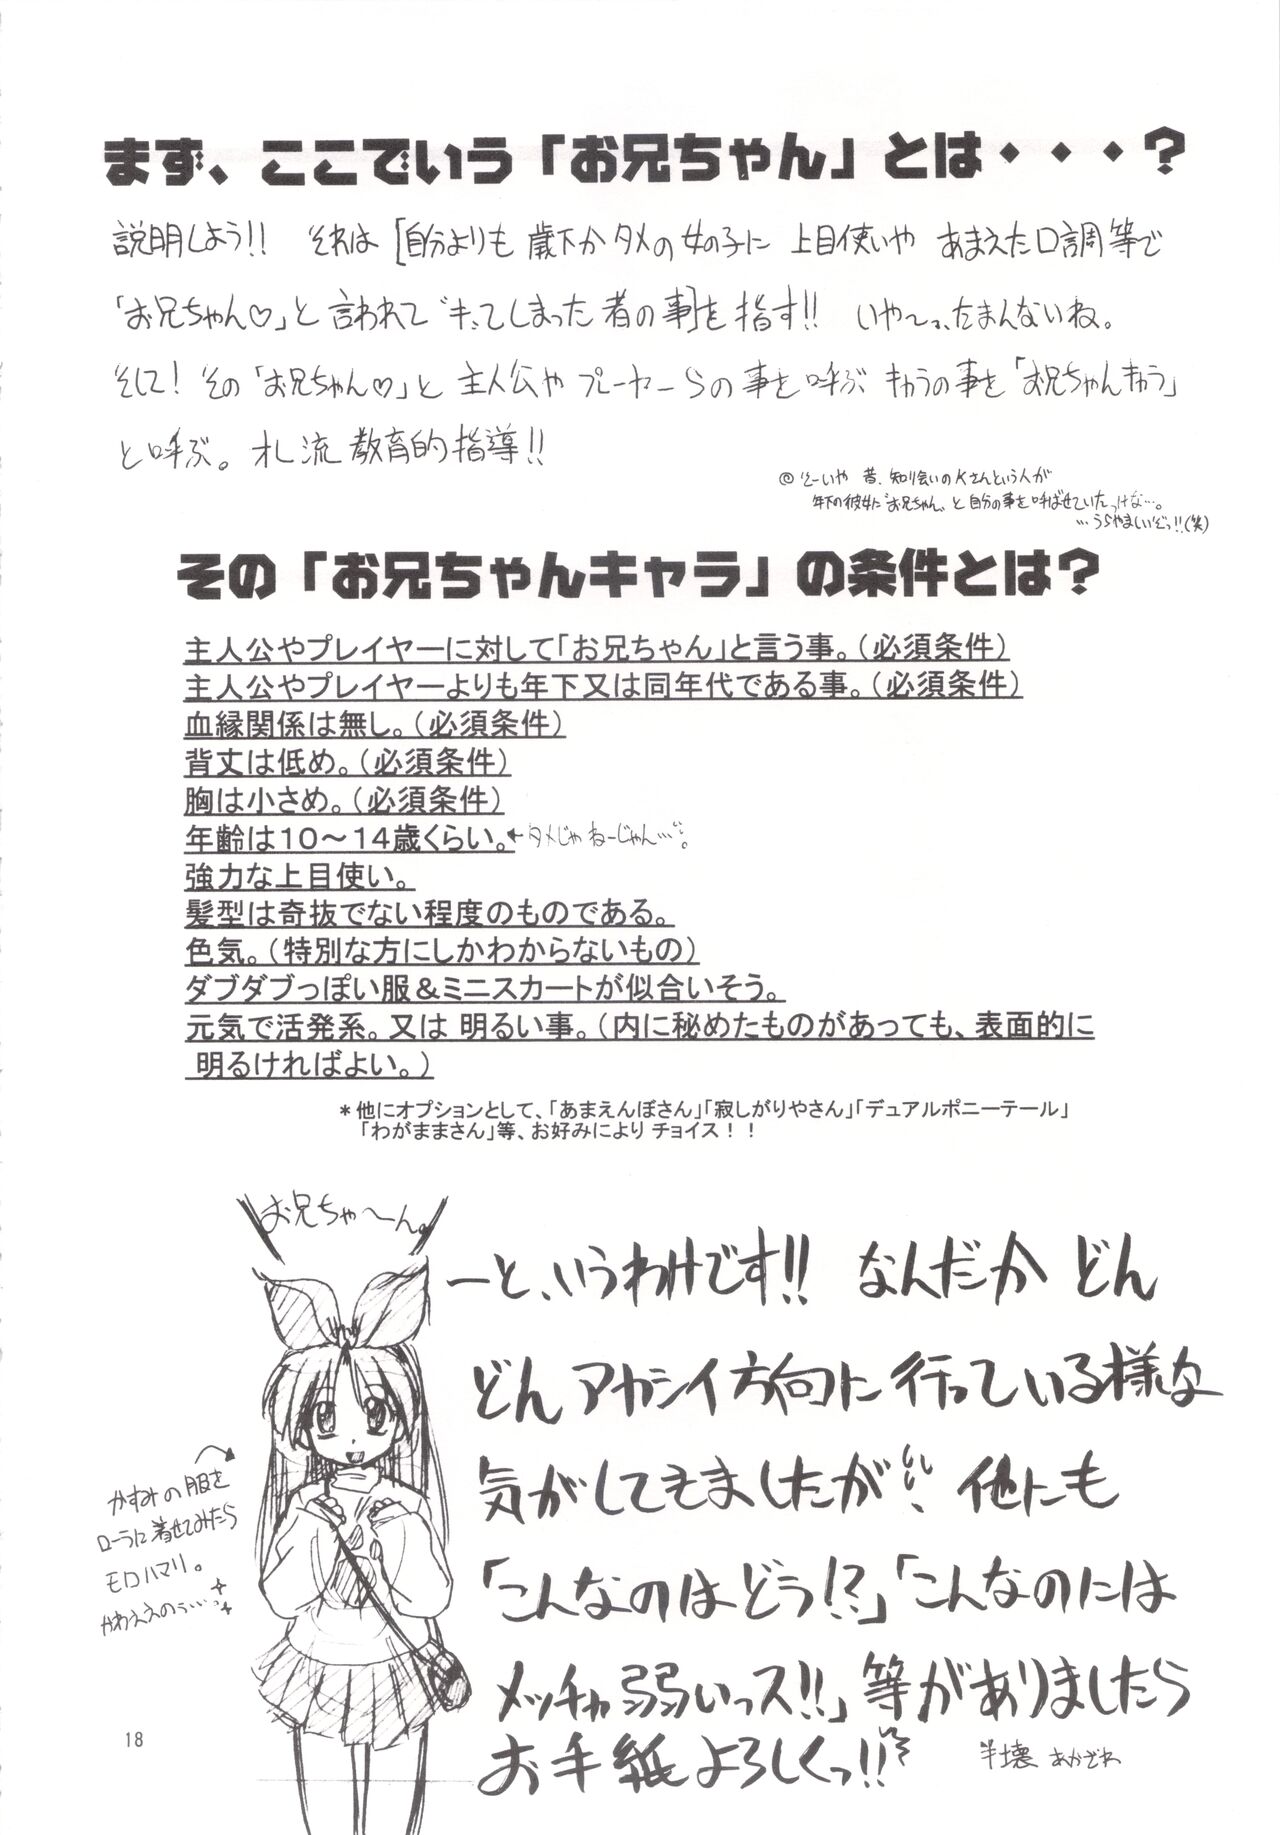 まず、ここでいう「お兄ちゃん」とは・・・?
説明しよう!! それは[自分よりも歳下かタメの女の子に 上目使いや あまえた口調等で
「お兄ちゃん♡」と言われて
を指す!! いや〜っ、たまんないね。
そして! その「お兄ちゃん♡」と 主人公や プレーヤーらの事を呼ぶ キャラの事を「お兄ちゃんキャラ」
と呼ぶ。オレ流 教育的指導!!
◎そーいや 昔、知り合いのKさんという人が
年下の彼女に“お兄ちゃん”と 自分の事を 呼ばせていたっけな…。
…うらやましいぞっ!!(笑)
その「お兄ちゃんキャラ」の条件とは?
主人公やプレイヤーに対して「お兄ちゃん」と言う事。(必須条件)
主人公やプレイヤーよりも年下又は同年代である事。(必須条件)
血縁関係は無し。(必須条件)
背丈は低め。(必須条件)
胸は小さめ。(必須条件)
年齢は10～14歳くらい。←タメじゃねーじゃん…。
強力な上目使い。
髪型は奇抜でない程度のものである。
色気。(特別な方にしかわからないもの)
ダブダブっぽい服＆ミニスカートが似合いそう。
元気で活発系。又は 明るい事。(内に秘めたものがあっても、表面的に
明るければよい。)
＊他にオプションとして、「あまえんぼさん」「寂しがりやさん」「デュアルポニーテール」
「わがままさん」等、お好みにより チョイス！！
お兄ちゃ〜ん。
ーと、いうわけです!! なんだか どん
どん アカシイ方向に 行っている様な
気がしてきましたが 他にも
「こんなのは どう!?」「こんなのには
メッチャ 弱いっス!!」等がありましたら
お手紙 よろしくっ!!
半壊 あかざわ
かすみの服を
ローラに着せてみたら
モロハマリ。
かわええのぅ…
18